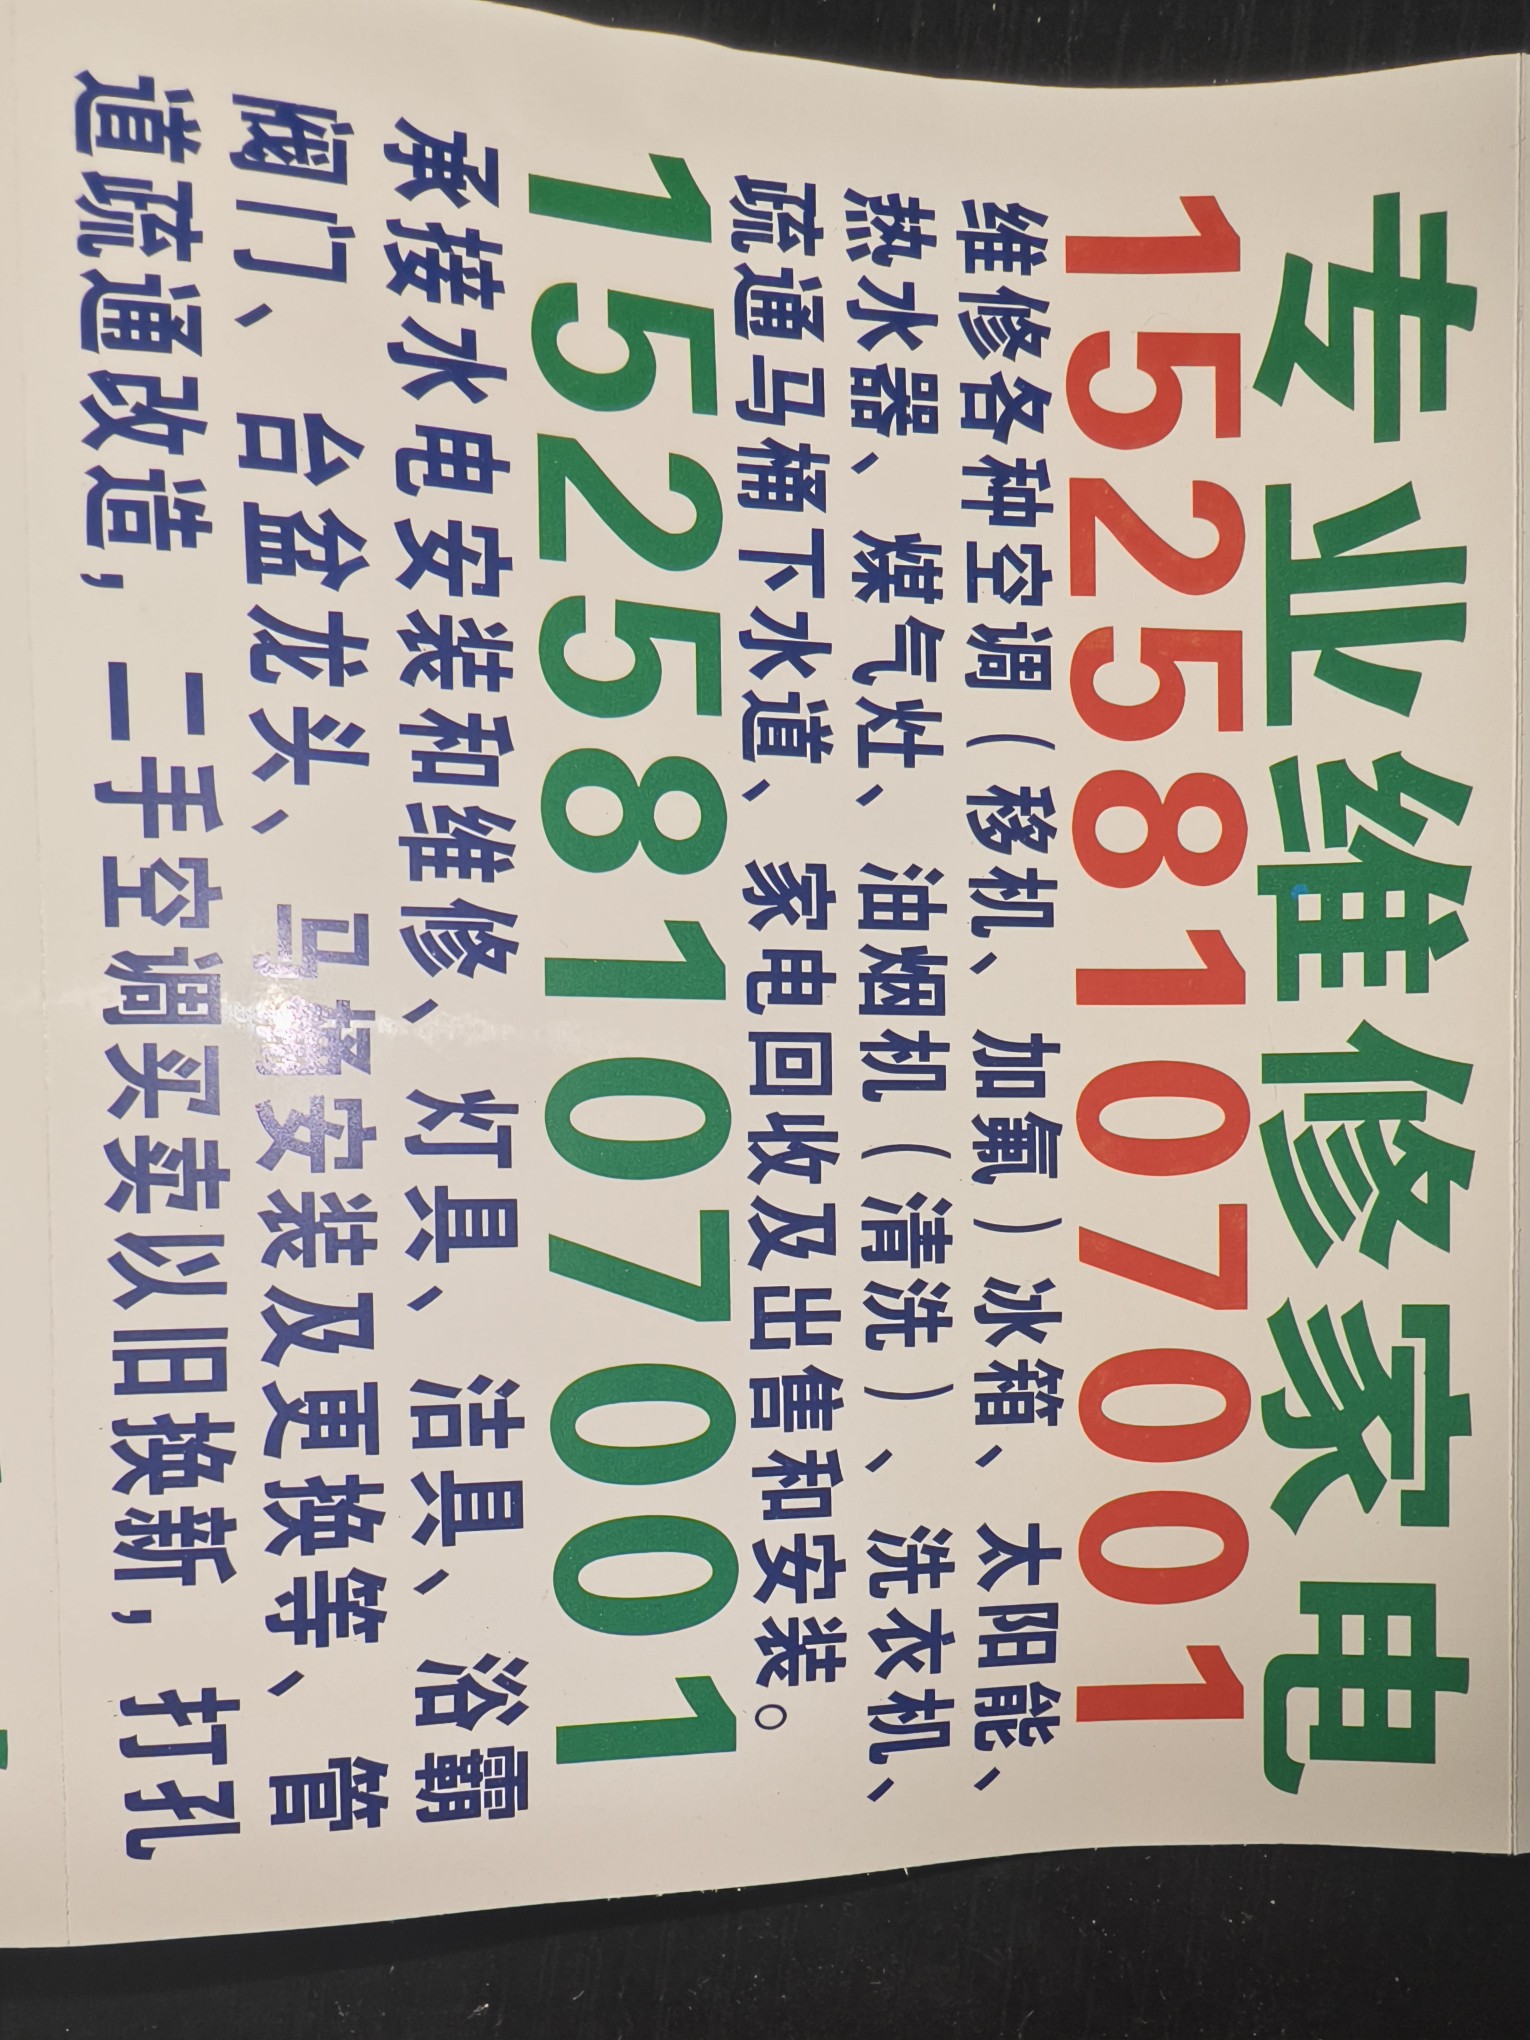 专业维修家电
15258107001
维修各种空调（移机、加氟）冰箱、太阳能、
热水器、煤气灶、油烟机（清洗）、洗衣机、
疏通马桶下水道、家电回收及出售和安装。
15258107001
承接水电安装和维修、灯具、洁具、浴霸
阀门、台盆龙头、马桶安装及更换等、管
道疏通改造，二手空调买卖以旧换新，打孔